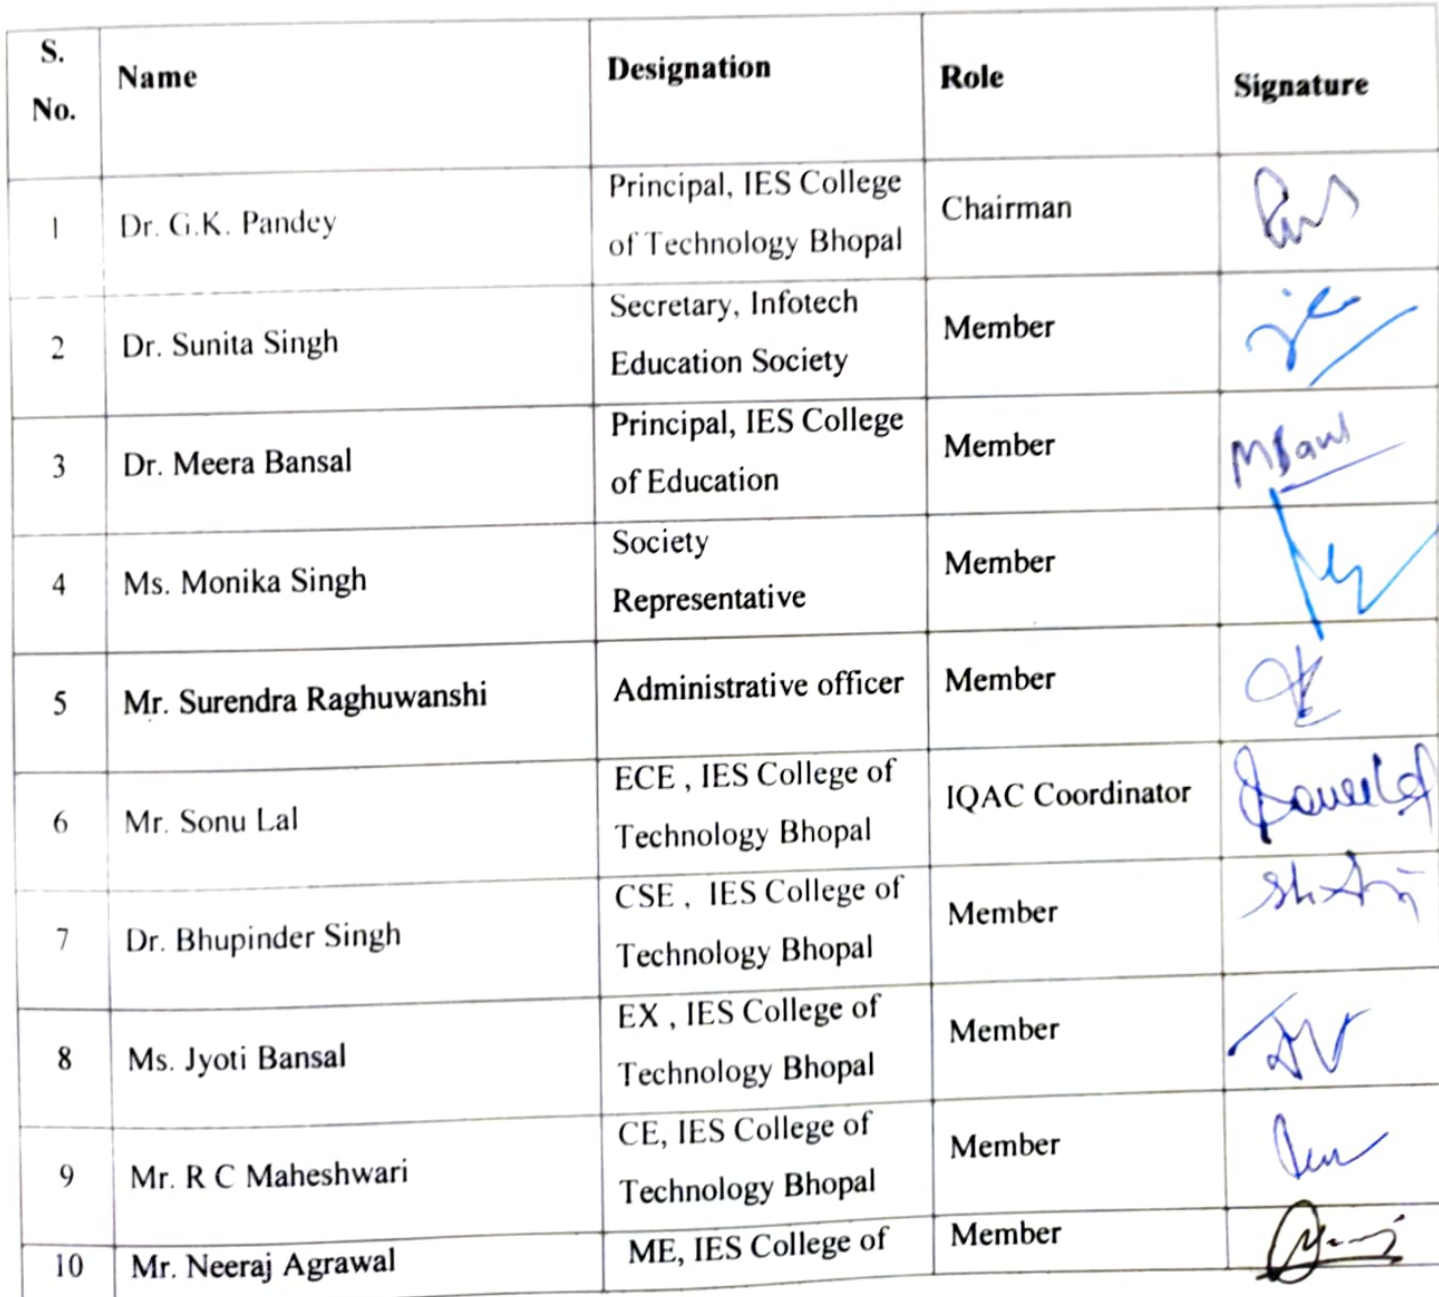 S. No. Name Designation Role Signature
1 Dr. G.K. Pandey Principal, IES College of Technology Bhopal Chairman
2 Dr. Sunita Singh Secretary, Infotech Education Society Member
3 Dr. Meera Bansal Principal, IES College of Education Member
4 Ms. Monika Singh Society Representative Member
5 Mr. Surendra Raghuwanshi Administrative officer Member
6 Mr. Sonu Lal ECE , IES College of Technology Bhopal IQAC Coordinator
7 Dr. Bhupinder Singh CSE , IES College of Technology Bhopal Member
8 Ms. Jyoti Bansal EX , IES College of Technology Bhopal Member
9 Mr. R C Maheshwari CE, IES College of Technology Bhopal Member
10 Mr. Neeraj Agrawal ME, IES College of Member